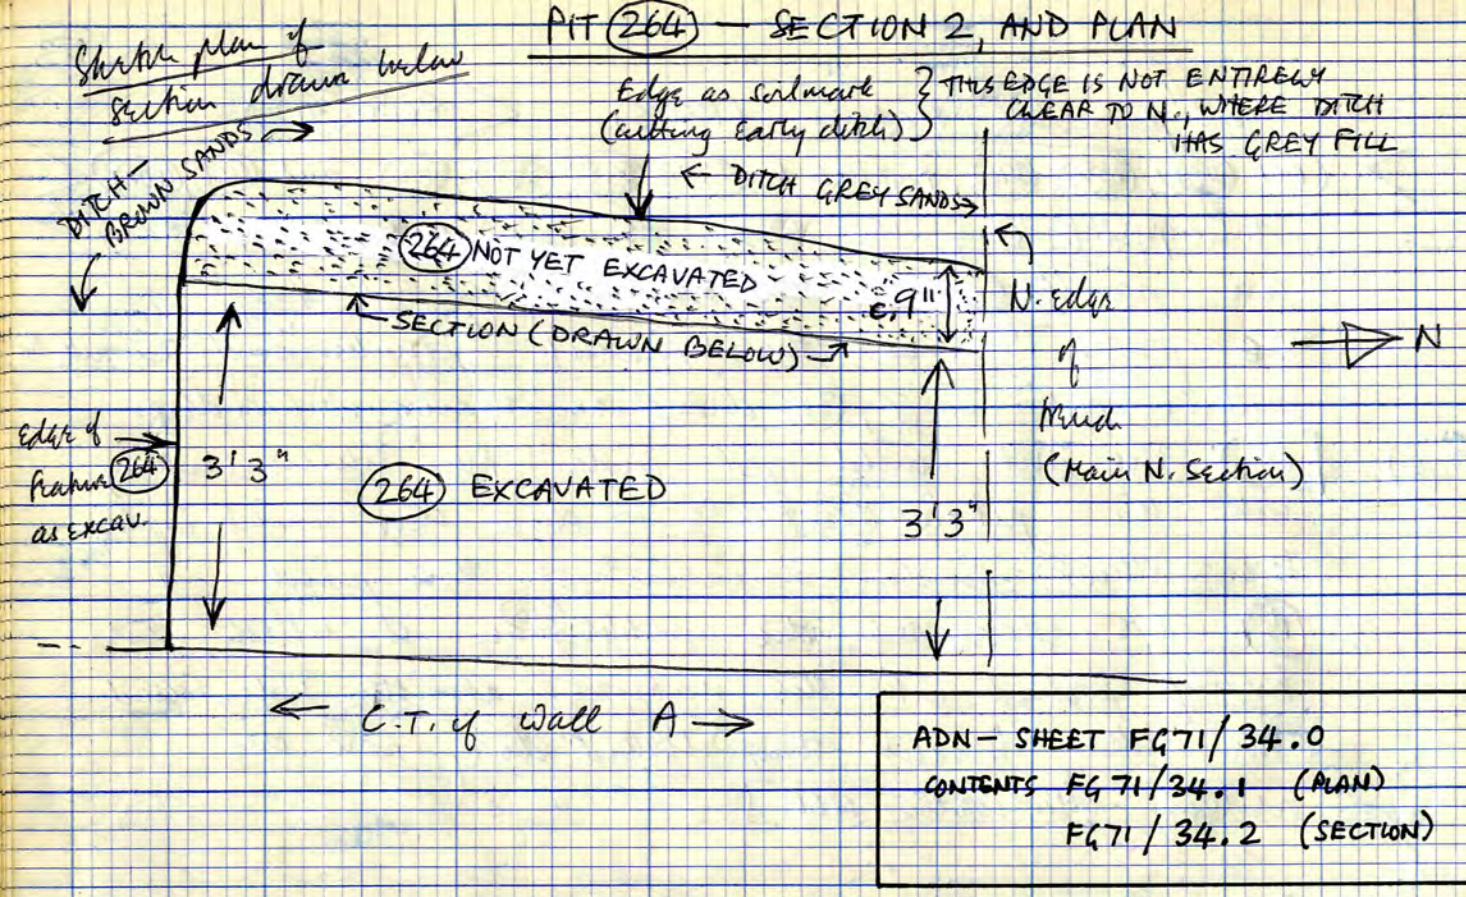 PIT (264) — SECTION 2, AND PLAN
Sketch plan of
section drawn below
Edge as soilmark
(cutting early ditch)
THIS EDGE IS NOT ENTIRELY
CLEAR TO N., WHERE DITCH
HAS GREY FILL
DITCH —
BROWN SANDS →
← DITCH GREY SANDS →
264 NOT YET EXCAVATED
c.9"
N. edge
of
trench
(Main N. Section)
N
SECTION (DRAWN BELOW)
Edge of
feature 264
as excav.
3' 3"
264 EXCAVATED
3' 3"
← C.T. of Wall A →
ADN — SHEET FG71/34.0
CONTENTS FG71/34.1 (PLAN)
FG71/34.2 (SECTION)